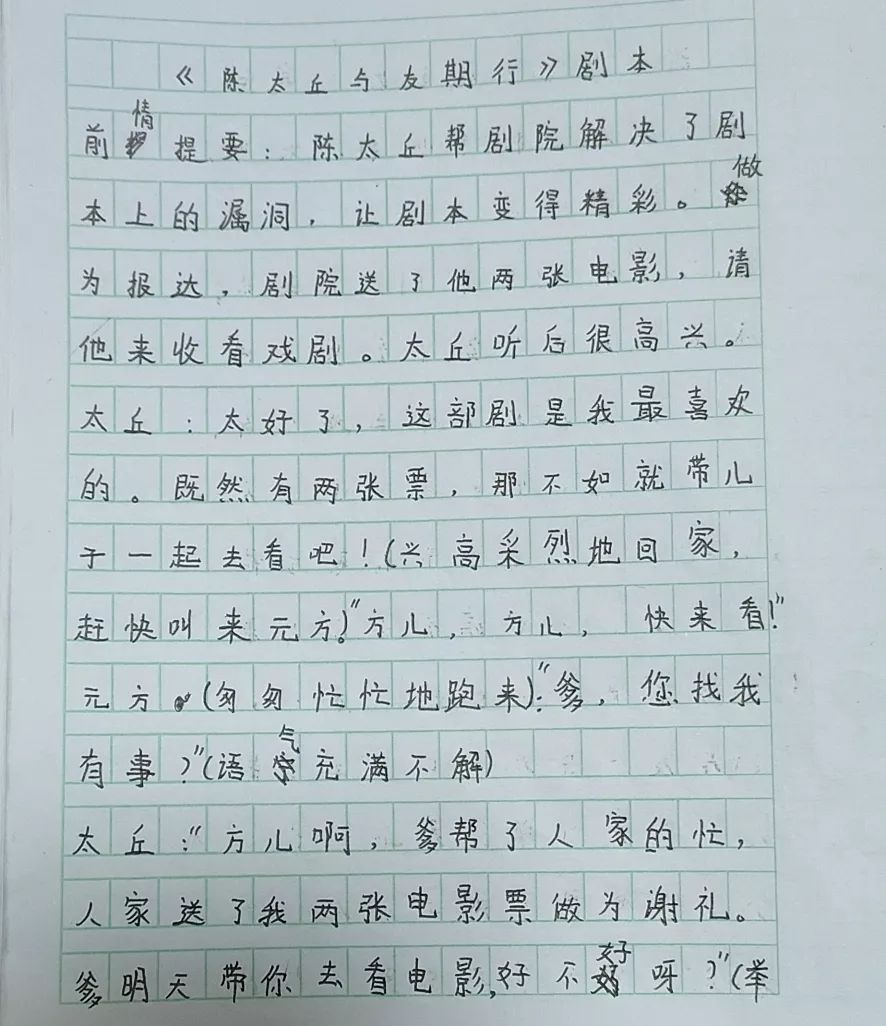 《陈太丘与友期行》剧本
前情提要：陈太丘帮剧院解决了剧
本上的漏洞，让剧本变得精彩。做
为报达，剧院送了他两张电影，请
他来收看戏剧。太丘听后很高兴。
太丘：太好了，这部剧是我最喜欢
的。既然有两张票，那不如就带儿
子一起去看吧！(兴高采烈地回家，
赶快叫来元方)。"方儿，方儿，快来看！"
元方。(匆匆忙忙地跑来)："爹，您找我
有事？"(语气充满不解)
太丘："方儿啊，爹帮了人家的忙，
人家送了我两张电影票做为谢礼。
爹明天带你去看电影,好不好呀？"(举